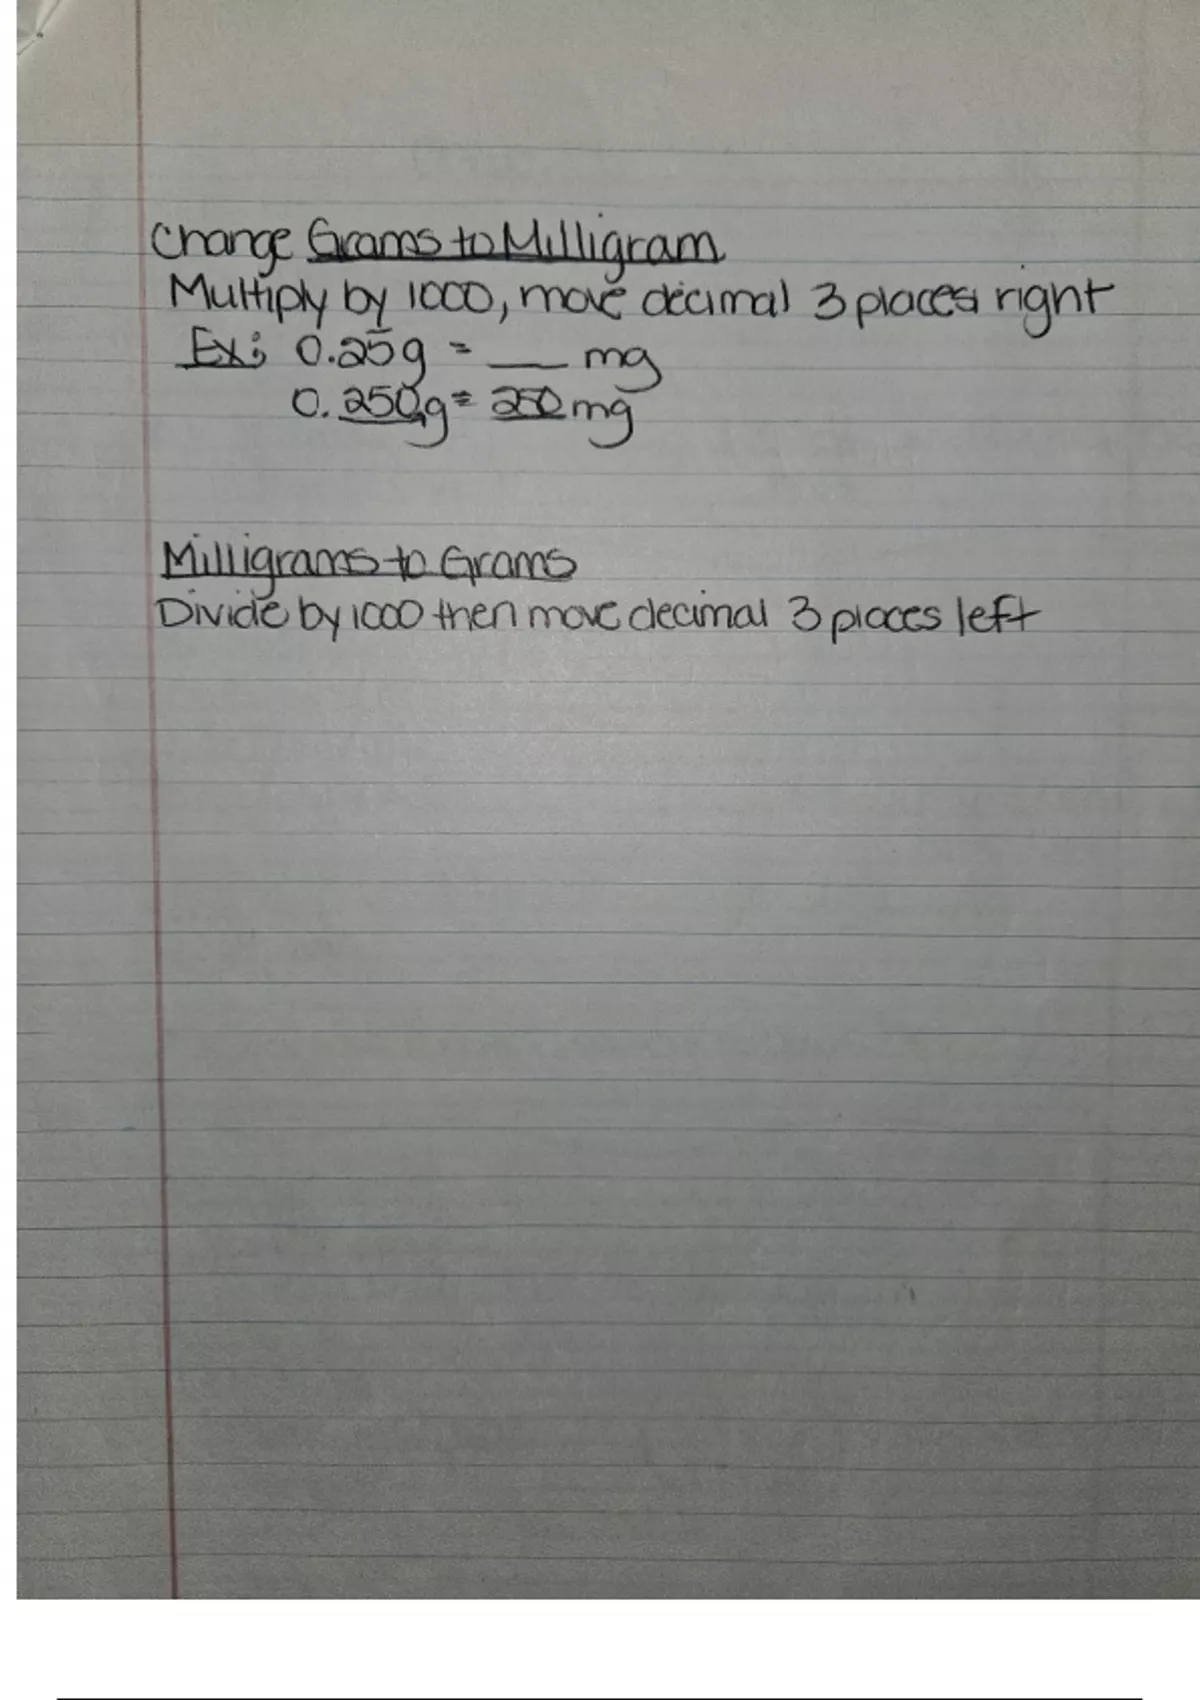 Change Grams to Milligram
Multiply by 1000, move decimal 3 places right
Ex: 0.25g = __ mg
0.250g = 250mg
Milligrams to Grams
Divide by 1000 then move decimal 3 places left